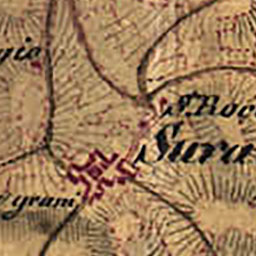 gio
S. Roc
Sura
gram